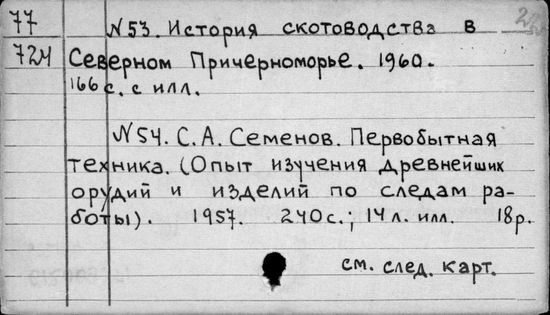 77 №53. История скотоводства в
724 Северном Причерноморье. 1960.
166 с. с илл.
№54. С. А. Семенов. Первобытная
техника. (Опыт изучения древнейших
орудий и изделий по следам ра-
боты). 1957. 240 с.; 14 л. илл. 18 р.
см. след. карт.